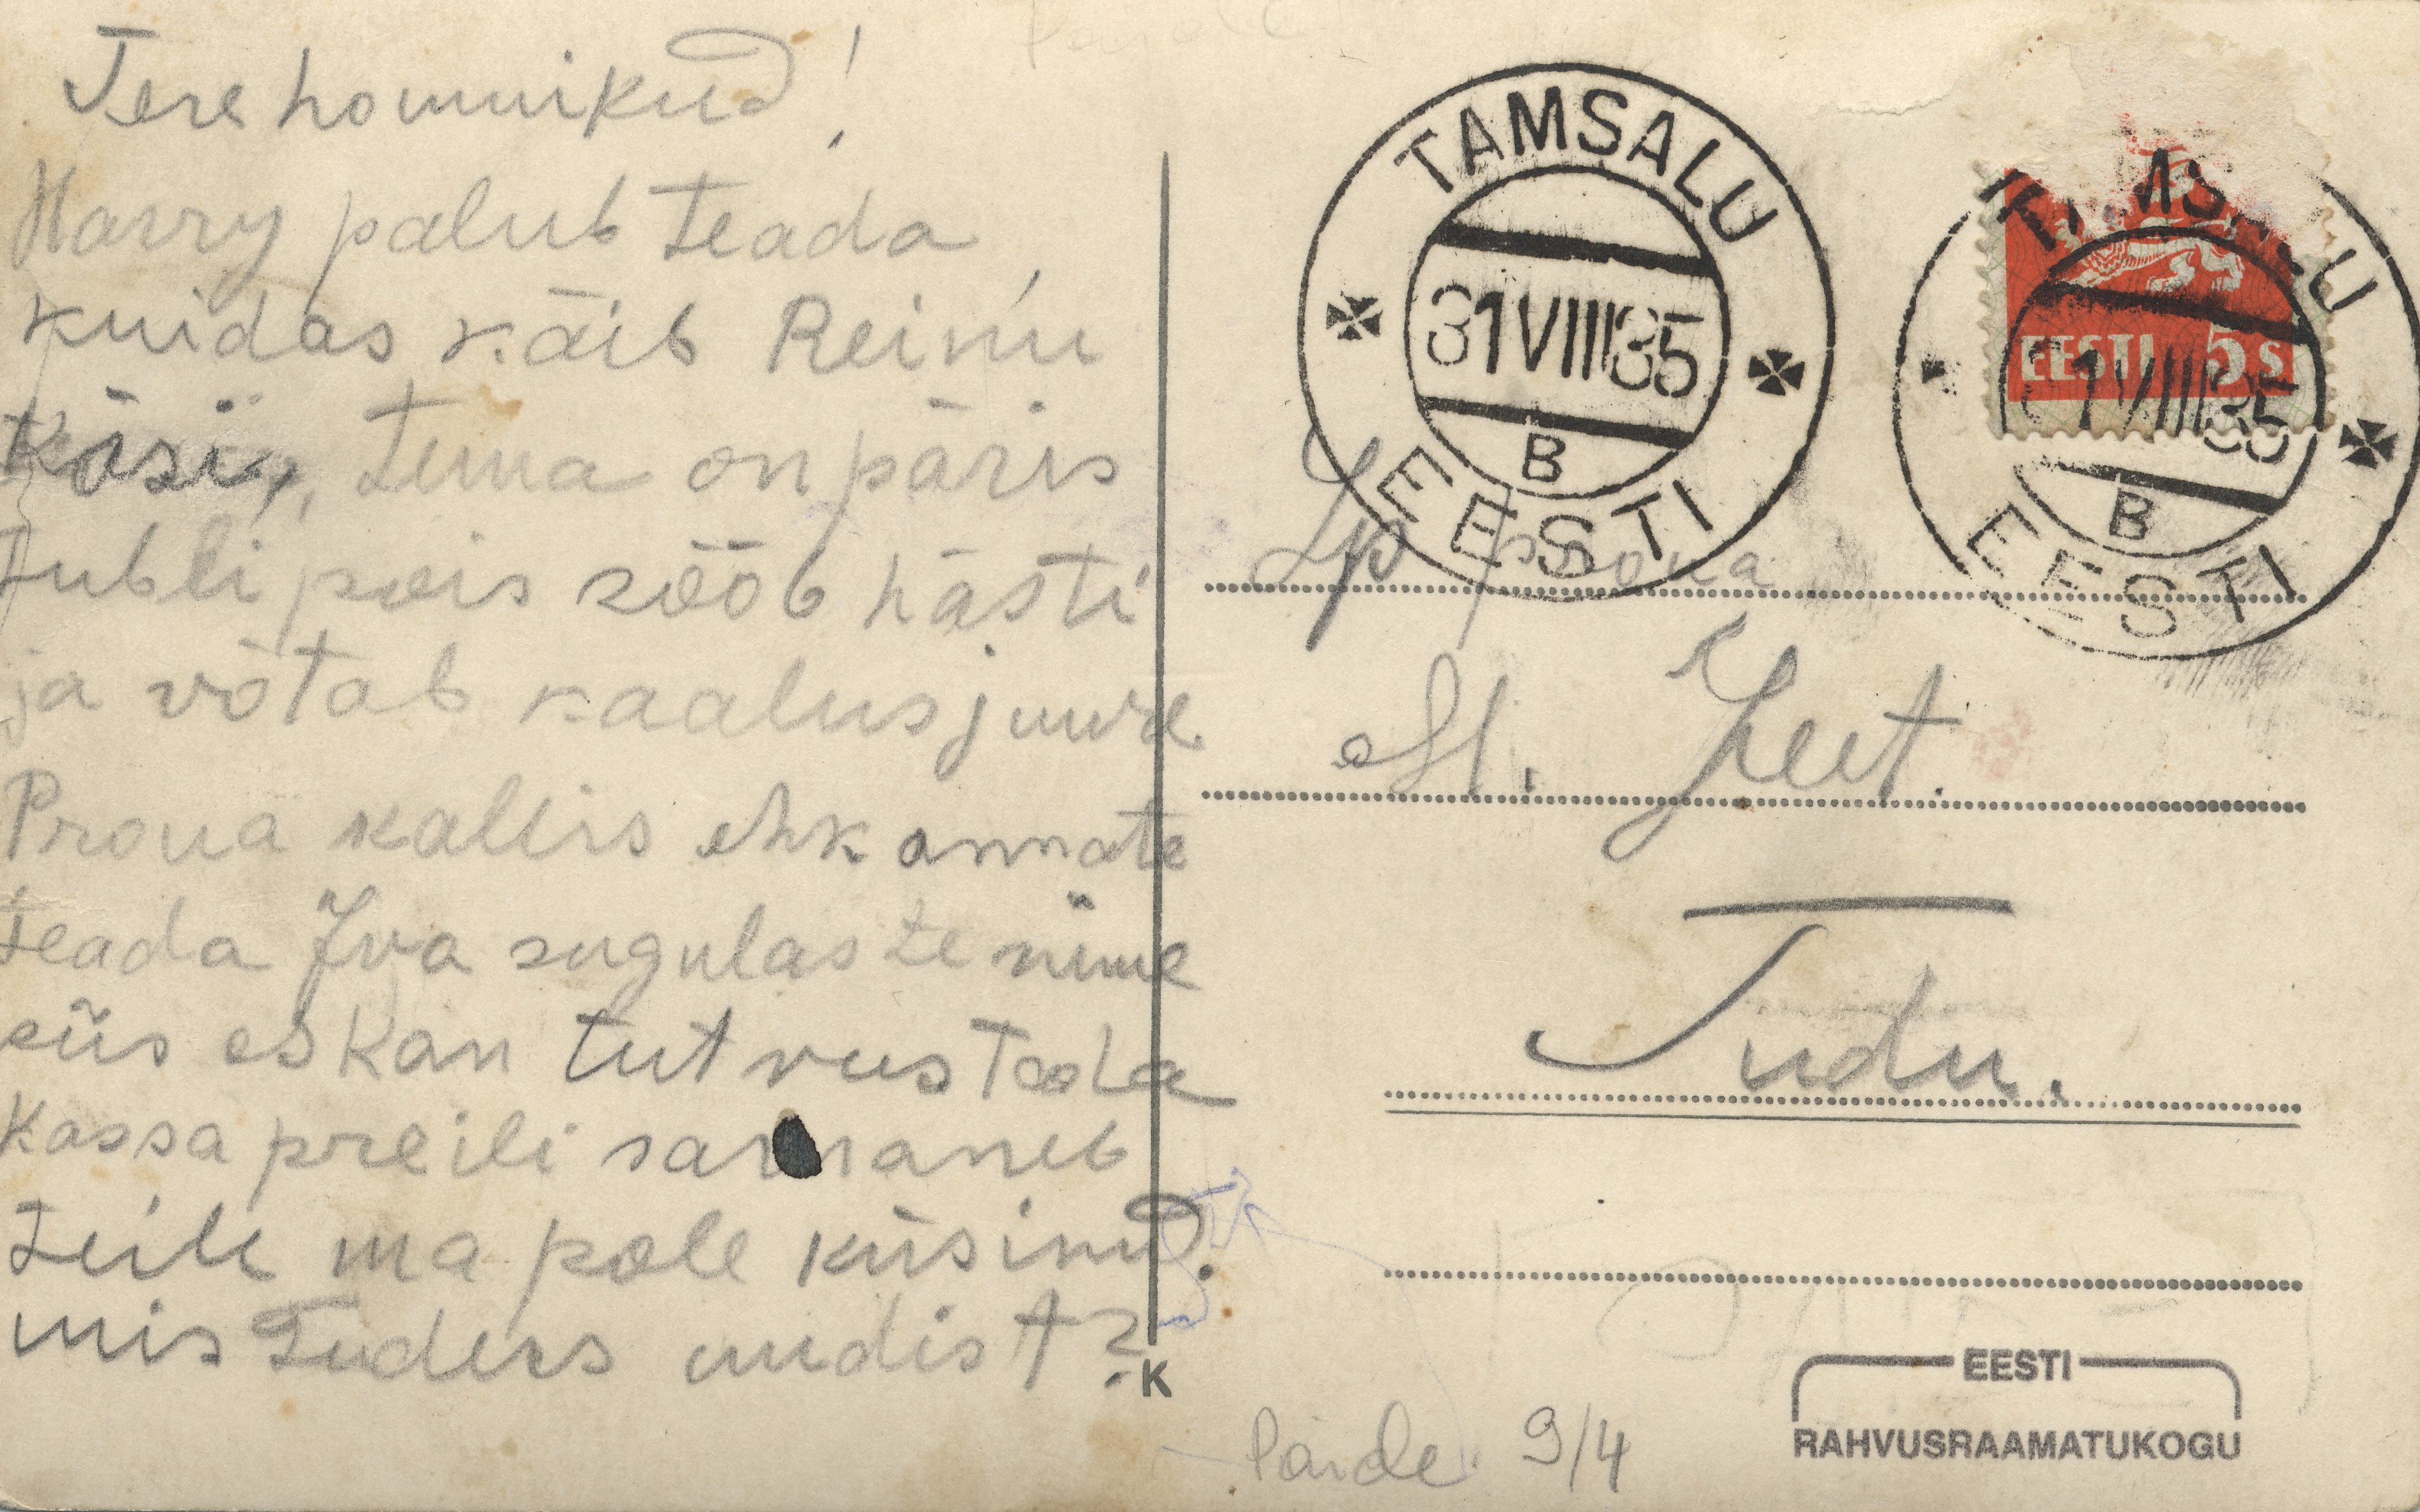 Tere hommikud!
Harry palub teada,
kuidas käib Reinu
käsi, tema on päris
tubli pois sööb hästi
ja võtab kaalus juure
Proua kallis ehk annate
teada Iva sugulaste nime
siis es kan tutvusteda
Kassa preili sarnaneb
teile ma pole küsinud.
mis Tudus uudist?
K
TAMSALU
31 VIII 35
B
EESTI
TAMSALU
31 VIII 35
B
EESTI
EESTI 5 S
Lp. proua
M. Leet.
Tudu.
Paide 9/4
EESTI
RAHVUSRAAMATUKOGU